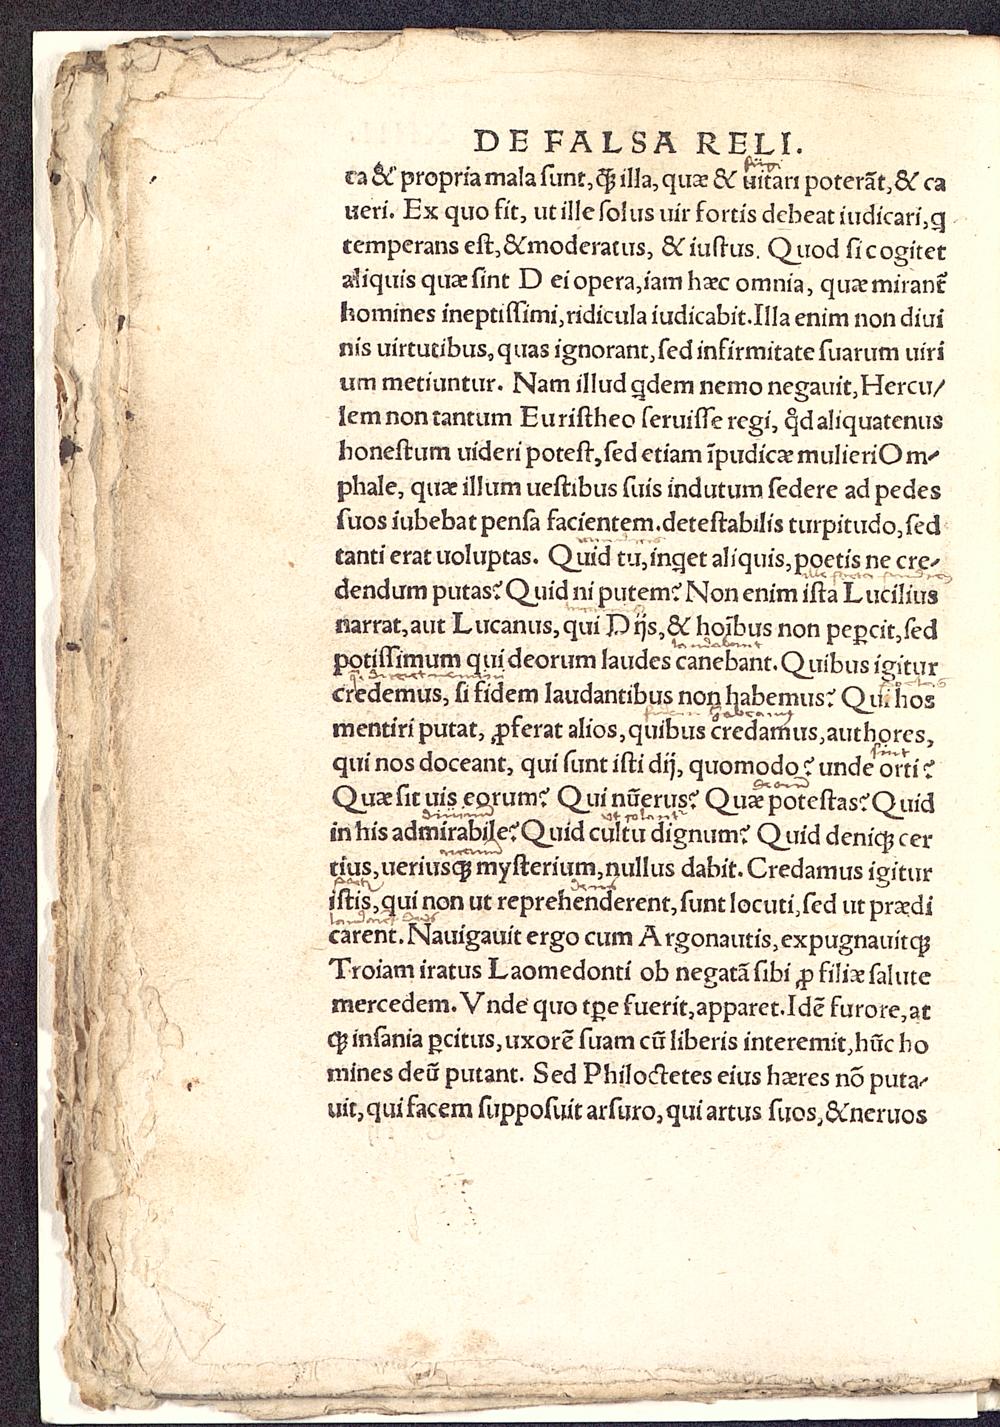 DE FALSA RELI.
fugi
ta & propria mala sunt, ꝙ̃ illa, quæ & uitari poterãt, & ca
ueri. Ex quo fit, ut ille solus uir fortis debeat iudicari, q
temperans est, & moderatus, & iustus. Quod si cogitet
aliquis quæ sint Dei opera, iam hæc omnia, quæ mirant᷑
homines ineptissimi, ridicula iudicabit. Illa enim non diui
nis uirtutibus, quas ignorant, sed infirmitate suarum uiri
um metiuntur. Nam illud qdem nemo negauit, Hercu/
lem non tantum Euristheo seruisse regi, qd̛ aliquatenus
honestum uideri potest, sed etiam ĩpudicæ mulieri Om-
phale, quæ illum uestibus suis indutum sedere ad pedes
suos iubebat pensa facientem. detestabilis turpitudo, sed
tanti erat uoluptas. Quid tu, inqet aliquis, poetis ne cre-
dendum putas? Quid ni putem? Non enim ista Lucilius
narrat, aut Lucanus, qui Dijs, & hoĩbus non peꝑcit, sed
laudabant
potissimum qui deorum laudes canebant. Quibus igitur
credemus, si fidem laudantibus non habemus? Qui hos
fidem habeamus
mentiri putat, ꝓferat alios, quibus credamus, authores,
sint
qui nos doceant, qui sunt isti dij, quomodo? unde orti?
Quæ sit uis eorum? Qui nũerus? Quæ potestas? Quid
in his admirabile? Quid cultu dignum? Quid deniqꝫ cer
tius, ueriusqꝫ mysterium, nullus dabit. Credamus igitur
istis, qui non ut reprehenderent, sunt locuti, sed ut prædi
carent. Nauigauit ergo cum Argonautis, expugnauitqꝫ
Troiam iratus Laomedonti ob negatã sibi ꝓ filiæ salute
mercedem. Vnde quo tꝑe fuerit, apparet. Idẽ furore, at
qꝫ insania ꝑcitus, uxorẽ suam cũ liberis interemit, hũc ho
mines deũ putant. Sed Philoctetes eius hæres nõ puta-
uit, qui facem supposuit arsuro, qui artus suos, & neruos